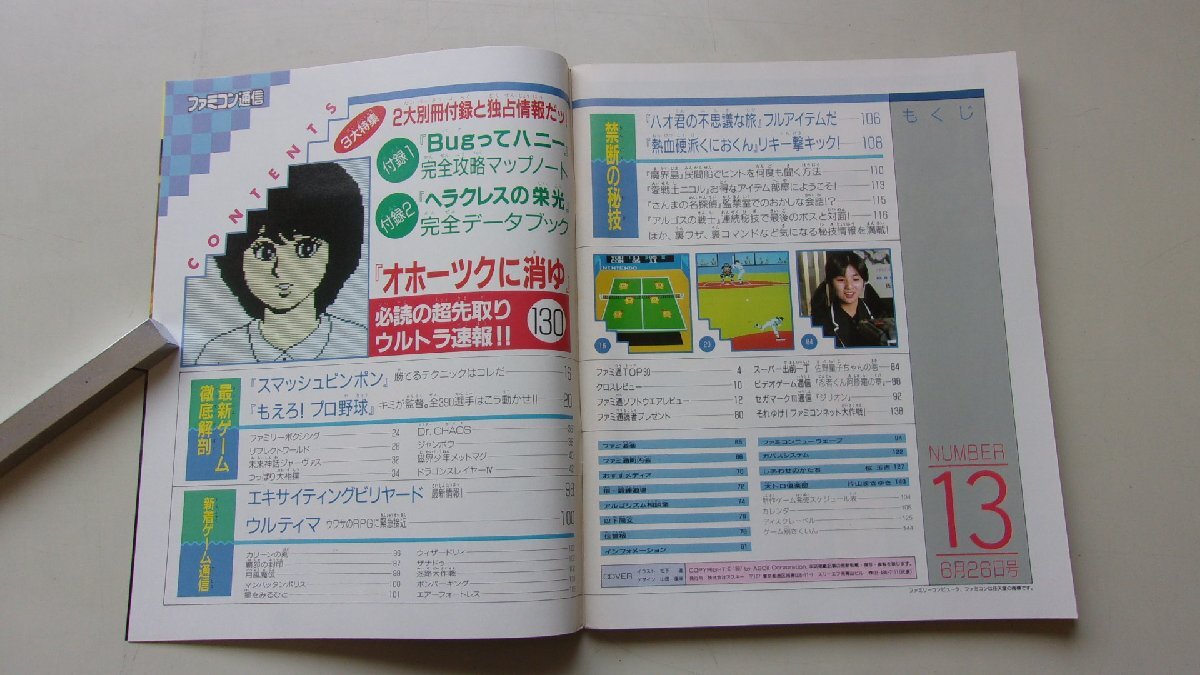 ファミコン通信
CONTENTS
3大特集
2大別冊付録と独占情報だッ!
付録1
『Bugってハニー』
完全攻略マップノート
付録2
『ヘラクレスの栄光』
完全データブック
『オホーツクに消ゆ』
必読の超先取り
ウルトラ速報!!
130
最新ゲーム
徹底解剖
『スマッシュピンポン』勝てるテクニックはコレだ 16
『もえろ!プロ野球』キミが監督。全390選手はこう動かせ!! 20
ファミリーボクシング 24
リフレクトワールド 26
未来神話ジャーヴァス 32
つっぱり大相撲 34
Dr.CHAOS
ジャンボウ
ドラゴンスレイヤーⅣ
新着ゲーム通信
エキサイティングビリヤード 最新情報! 99
ウルティマ ウワサのRPGに緊急接近 100
カリーンの剣 96
覇邪の封印 97
月風魔伝 98
マンハッタンポリス
星をみるひと 101
ウィザードリィ
ザナドゥ
ボンバーキング
エアーフォートレス
もくじ
禁断の秘技
『ハオ君の不思議な旅』フルアイテムだ 106
『熱血硬派くにおくん』リキ一撃キック! 108
『魔界島』民間陥でヒントを何度も聞く方法 110
『愛戦士ニコル』お得なアイテム部屋にようこそ! 113
『さんまの名探偵』監禁室でのおかしな会話!? 115
『アルゴスの戦士』連続秘技で最後のボスと対面! 116
ほか、裏ワザ、裏コマンドなど気になる秘技情報を満載!
NINTENDO
16
20
84
ファミ通TOP30 4
クロスレビュー 10
ファミ通ソフトウエアレビュー 12
ファミ通読者プレゼント 80
スーパー出前一丁 84
ビデオゲーム通信 90
セガマークⅢ通信『ジリオン』 92
それゆけ!ファミコンネット大作戦! 138
ファミ通町内会
おすすメディア
アルゴリズム相談室
以下腐文
伝言板
インフォメーション
ファミコンニューウェーブ
ガバスシステム
しあわせのかたち 桜玉吉
大トロ倶楽部
新作ゲーム発売スケジュール表 104
カレンダー
ディスクレーベル
ゲーム別さくいん
COVER
NUMBER
13
6月26日号
ファミリーコンピュータ、ファミコンは任天堂の商標です。